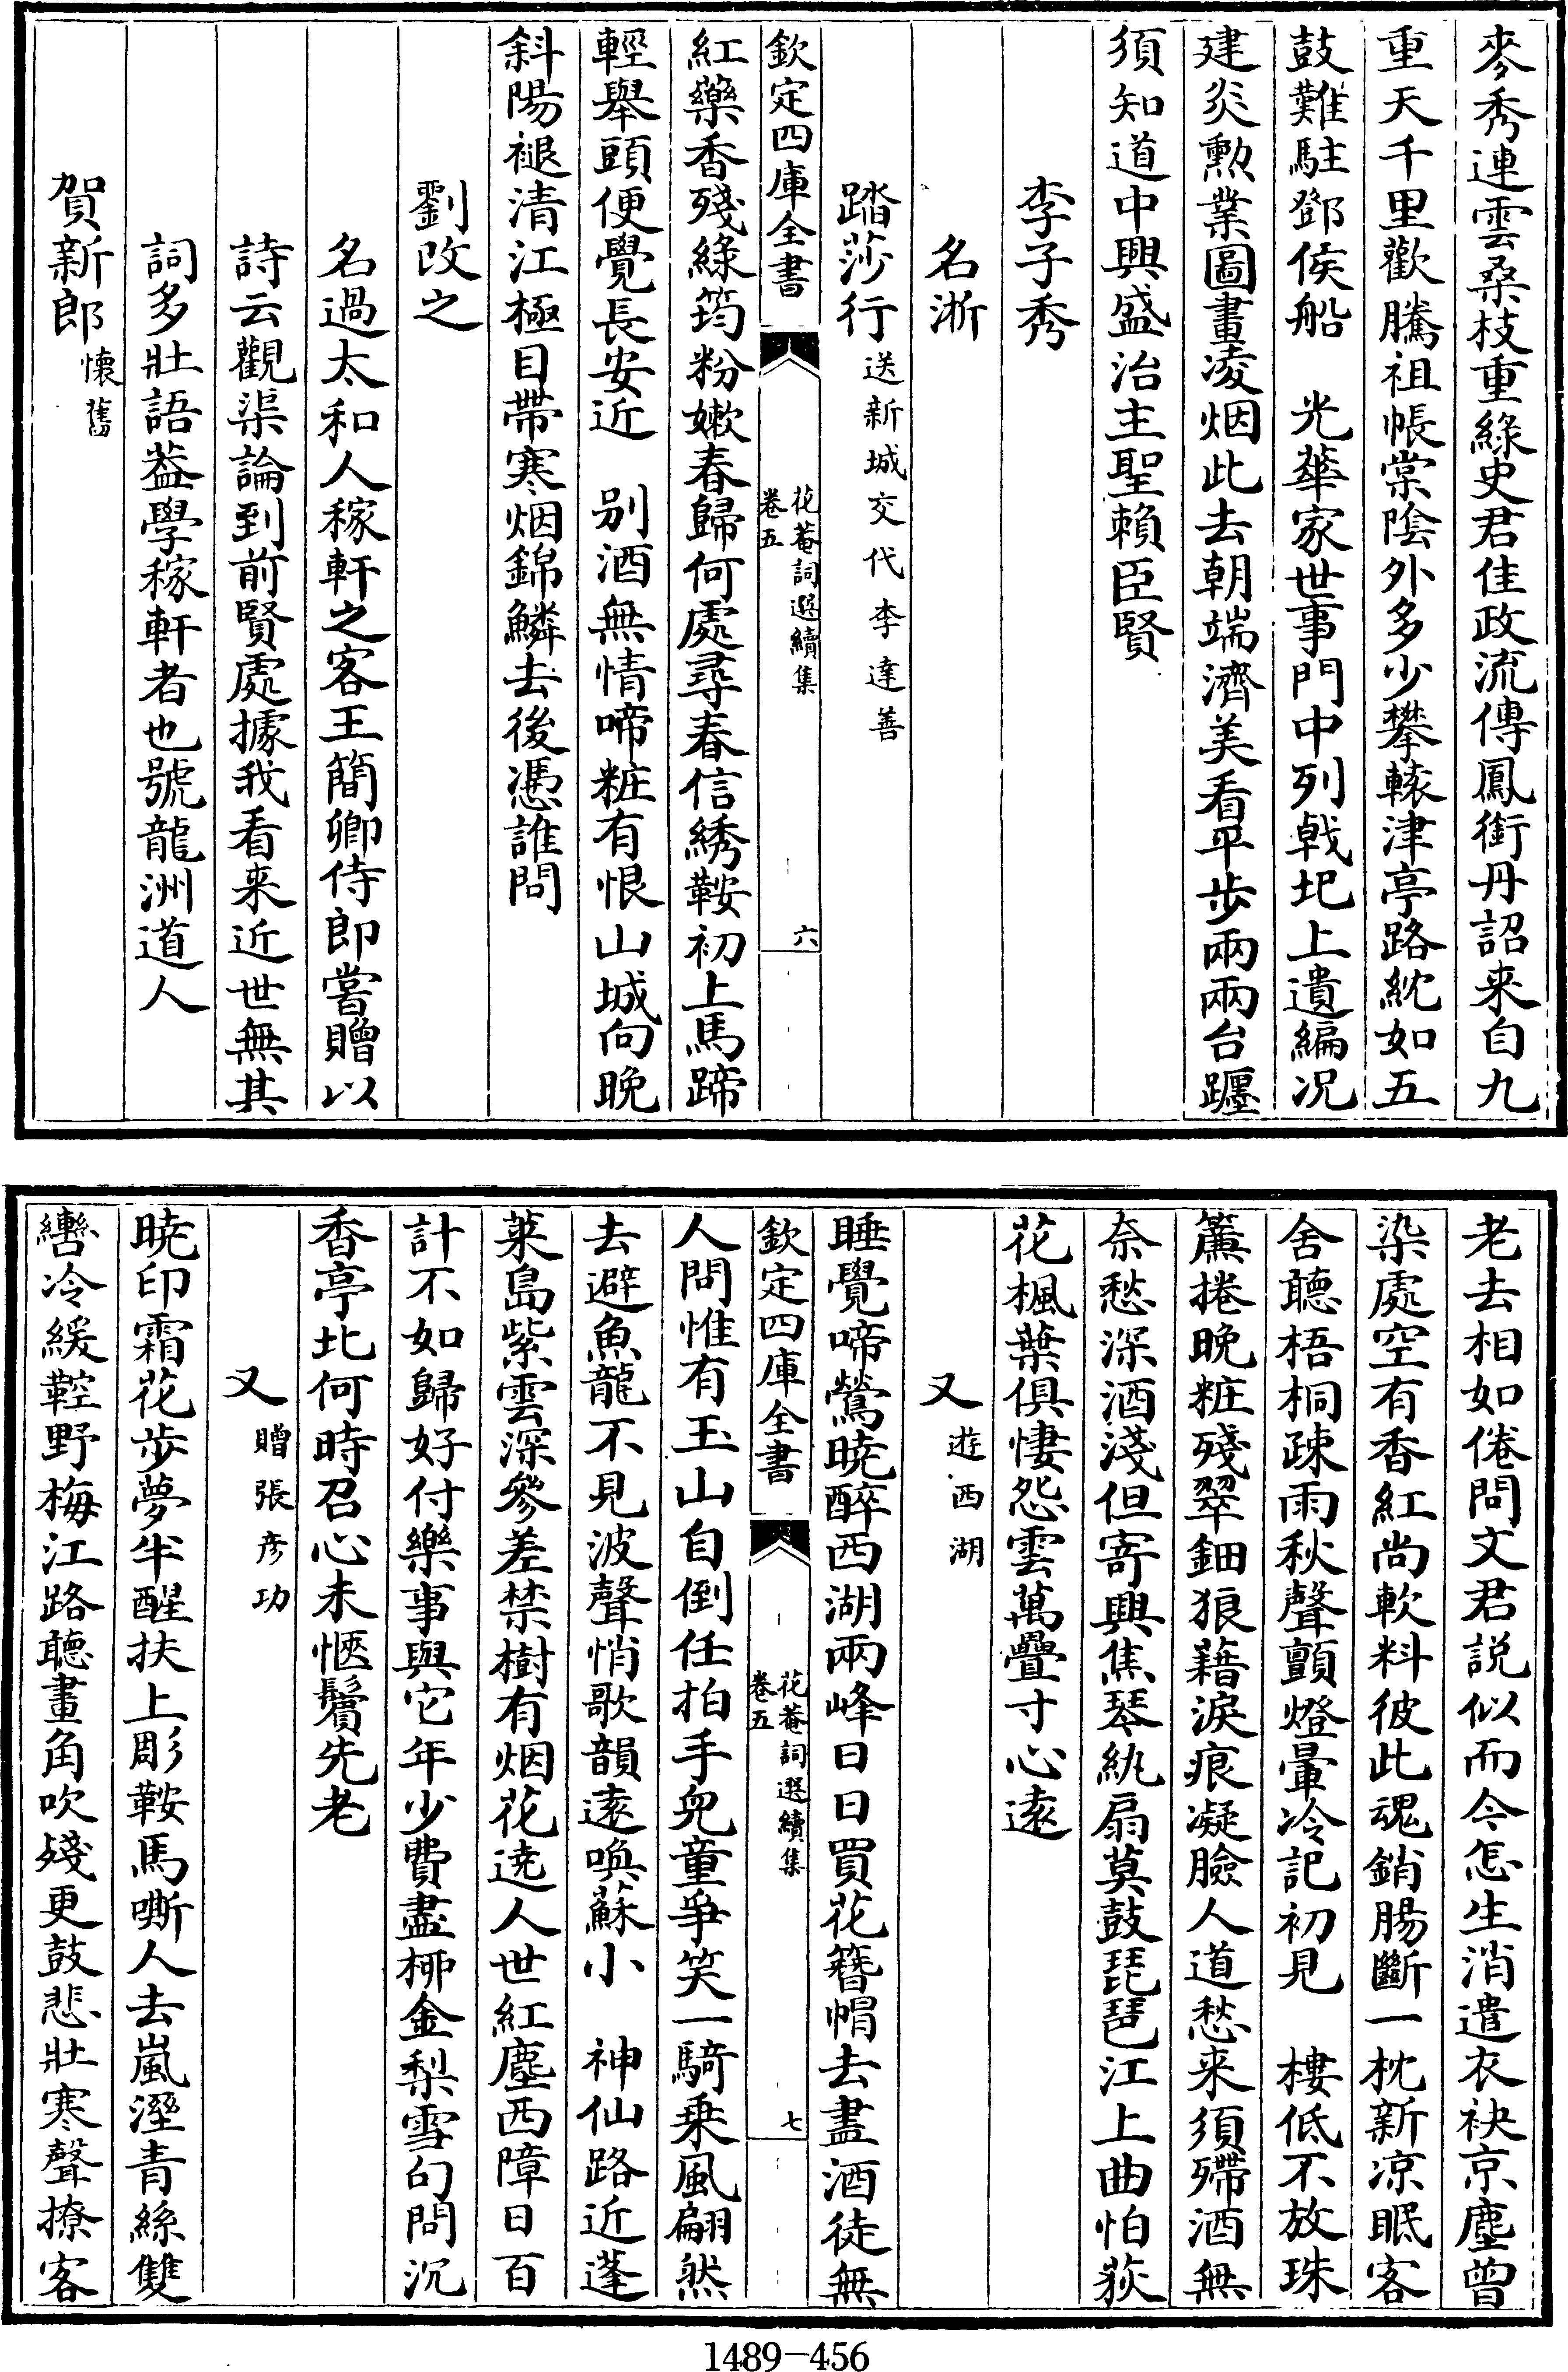 麥秀連雲桑枝重綠史君佳政流傳鳳銜丹詔来自九
重天千里歡騰祖帳棠陰外多少攀轅津亭路紞如五
鼓難駐鄧侯船　光華家世事門中列戟圯上遺編况
建炎勲業圖畫凌烟此去朝端濟美看平步兩兩台躔
須知道中興盛治主聖賴臣賢
李子秀
名淅
踏莎行送新城交代李達善
欽定四庫全書
花菴詞選續集
卷五
六
紅藥香殘綠筠粉嫰春歸何處尋春信綉鞍初上馬蹄
輕舉頭便覺長安近　别酒無情啼粧有恨山城向晚
斜陽褪清江極目帶寒烟錦鱗去後憑誰問
劉改之
名過太和人稼軒之客王簡卿侍郎嘗贈以
詩云觀渠論到前賢處據我看来近世無其
詞多壯語葢學稼軒者也號龍洲道人
賀新郎懷舊
老去相如倦問文君説似而今怎生消遣衣袂京塵曾
染處空有香紅尚軟料彼此魂銷腸斷一枕新凉眠客
舍聽梧桐疎雨秋聲顫燈暈冷記初見　樓低不放珠
簾捲晚粧殘翠鈿狼藉淚痕凝臉人道愁来須殢酒無
奈愁深酒淺但寄興焦琴紈扇莫鼓琵琶江上曲怕荻
花楓葉俱悽怨雲萬疊寸心遠
又遊西湖
睡覺啼鶯暁醉西湖兩峰日日買花簪帽去盡酒徒無
欽定四庫全書
花菴詞選續集
卷五
七
人問惟有玉山自倒任拍手兒童爭笑一騎乗風翩然
去避魚龍不見波聲悄歌韻遠喚蘇小　神仙路近蓬
萊島紫雲深參差禁樹有烟花遶人世紅塵西障日百
計不如歸好付樂事與它年少費盡桺金梨雪句問沉
香亭北何時召心未愜鬢先老
又贈張彦功
暁印霜花步夢半醒扶上彫鞍馬嘶人去嵐溼青絲雙
轡冷緩鞚野梅江路聽畫角吹殘更鼓悲壯寒聲撩客
1489-456